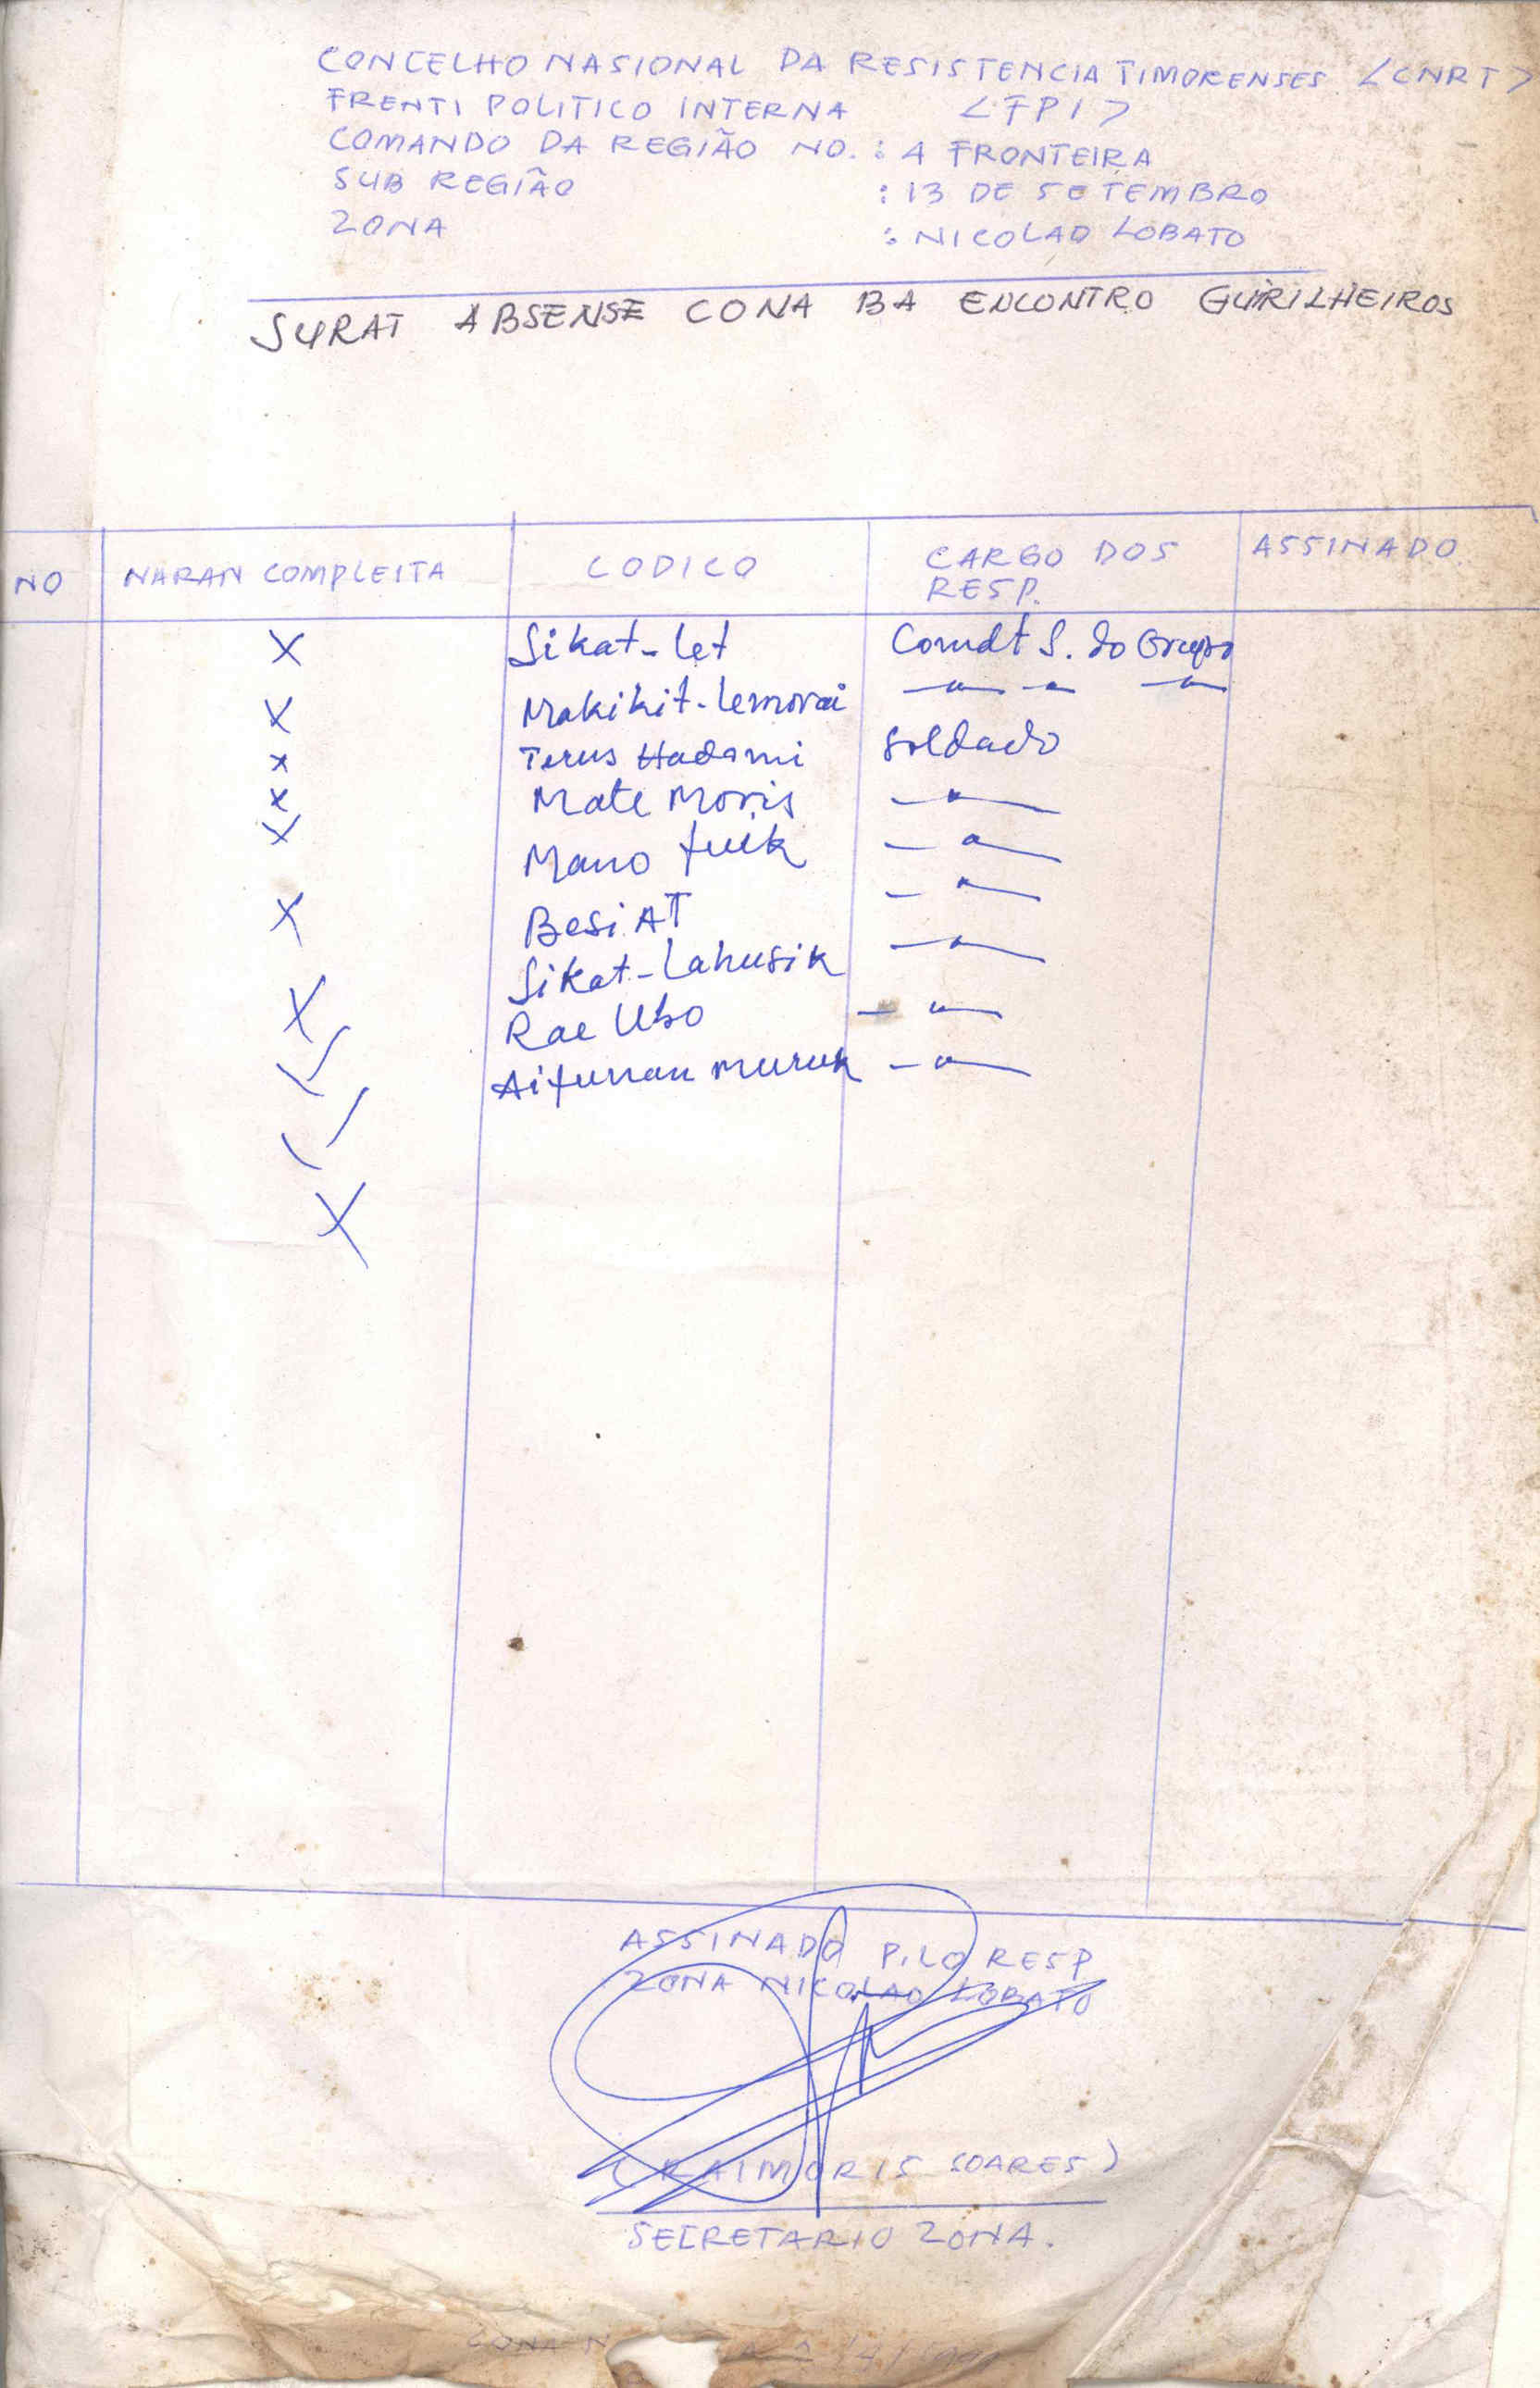 CONCELHO NASIONAL DA RESISTENCIA TIMORENSES <CNRT>
FRENTI POLITICO INTERNA <FPI>
COMANDO DA REGIÃO NO. : 4 FRONTEIRA
SUB REGIÃO : 13 DE SETEMBRO
ZONA : NICOLAO LOBATO
SURAT ABSENSE CONA BA ENCONTRO GUIRILHEIROS
NO NARAN COMPLEITA CODICO CARGO DOS RESP. ASSINADO
X Sikat-Let Comdt S. do Grupo
X Makikit-Lemorai —"— —"— —"—
X Terus Hadomi Soldado
X Mate Moris —"—
X Mano fuik —"—
X Besi AT —"—
X Sikat-Lahusik —"—
Rae Ubo —"—
Aifunan muruk —"—
X
ASSINADO P.LO RESP
ZONA NICOLAO LOBATO
(RAIMORIS SOARES)
SECRETARIO ZONA.
ZONA N